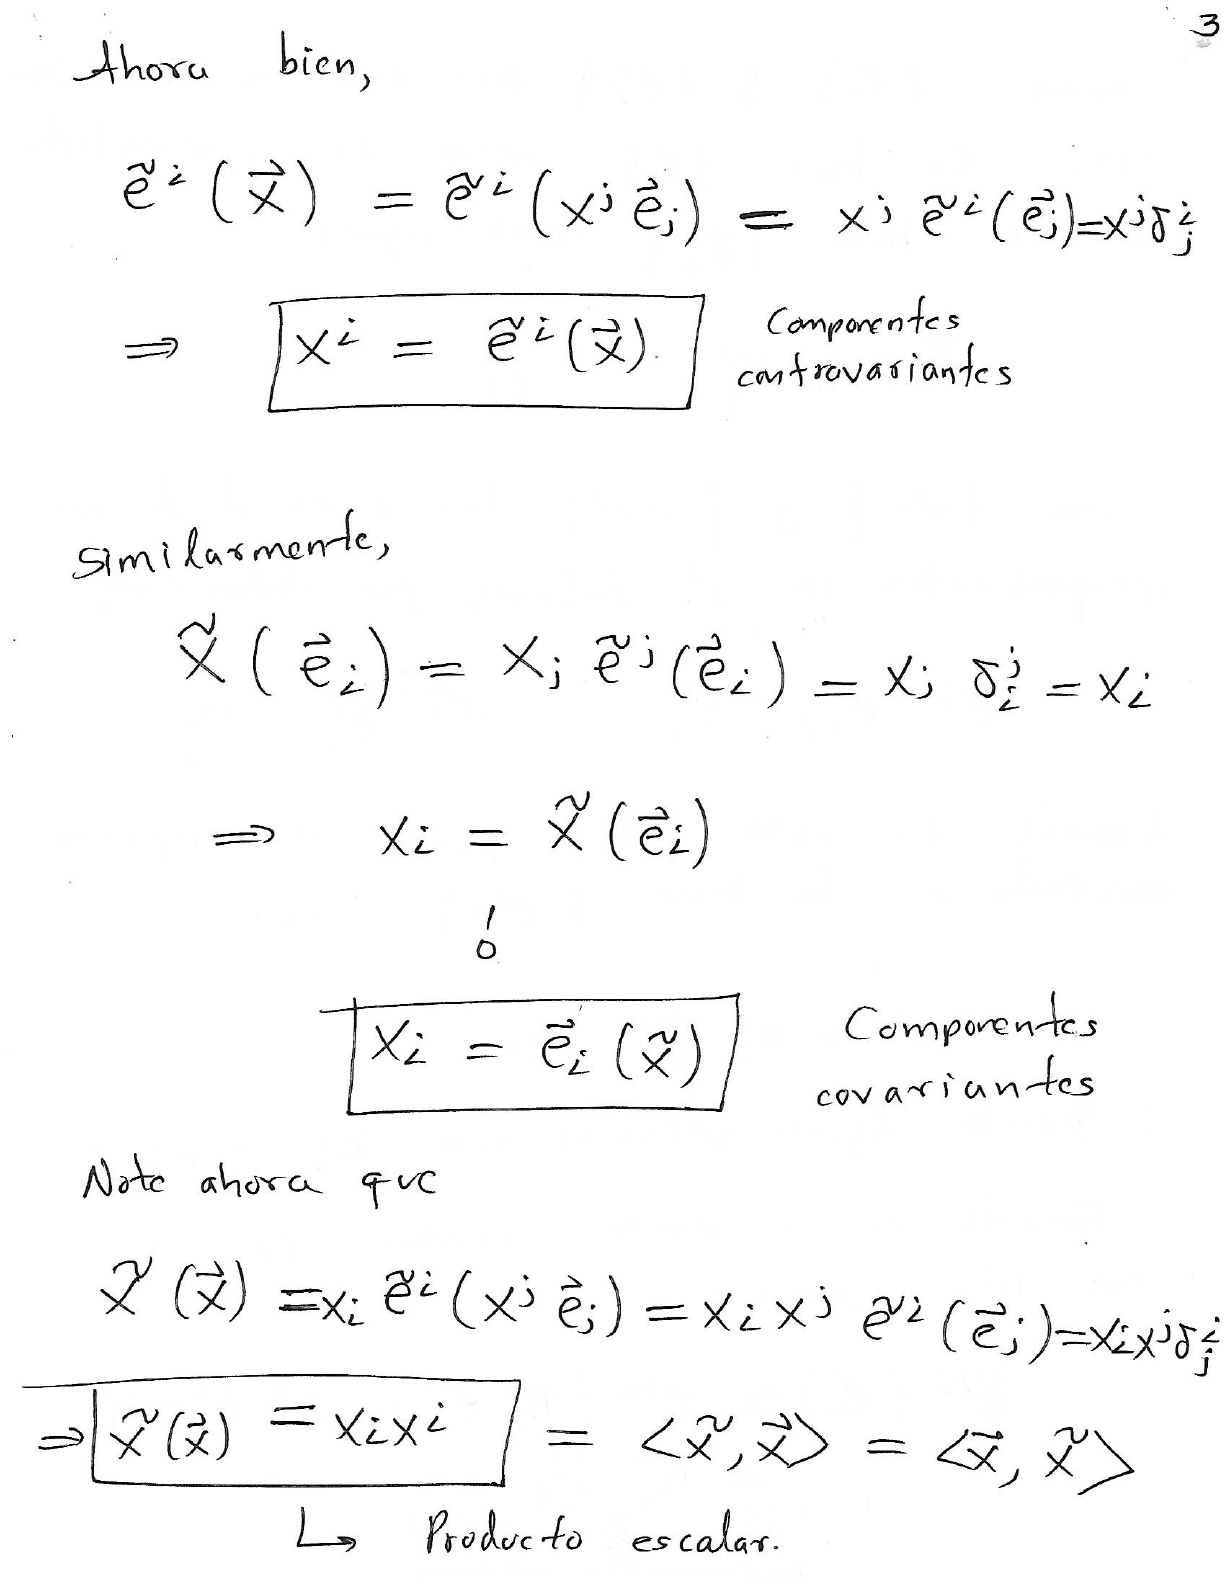 3
Ahora bien,
ẽⁱ(x⃗) = ẽⁱ(xʲ e⃗ⱼ) = xʲ ẽⁱ(e⃗ⱼ) = xʲ δⁱⱼ
⇒ xⁱ = ẽⁱ(x⃗). Componentes
contravariantes
Similarmente,
x̃(e⃗ᵢ) = xⱼ ẽʲ(e⃗ᵢ) = xⱼ δʲᵢ = xᵢ
⇒ xᵢ = x̃(e⃗ᵢ)
ó
xᵢ = e⃗ᵢ(x̃) Componentes
covariantes
Note ahora que
x̃(x⃗) = xᵢ ẽⁱ(xʲ e⃗ⱼ) = xᵢ xʲ ẽⁱ(e⃗ⱼ) = xᵢ xʲ δⁱⱼ
⇒ x̃(x⃗) = xᵢ xⁱ = <x̃, x⃗> = <x⃗, x̃>
↳ Producto escalar.